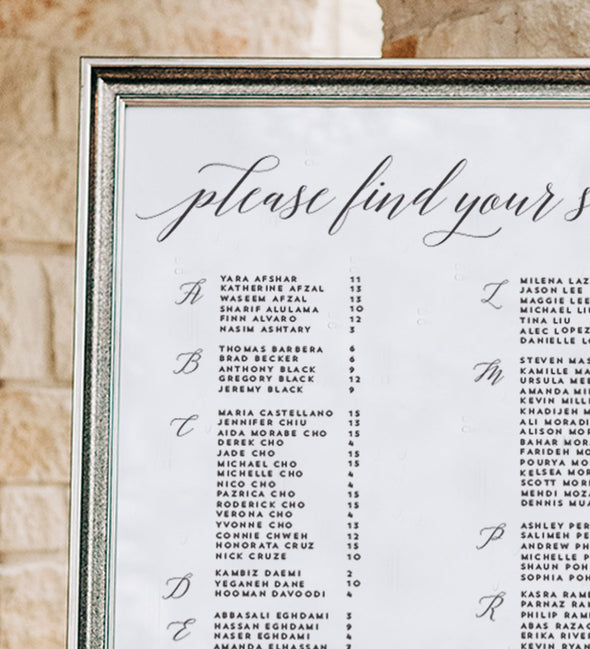 please find your s
A
YARA AFSHAR 11
KATHERINE AFZAL 13
WASEEM AFZAL 13
SHARIF ALULAMA 10
FINN ALVARO 12
NASIM ASHTARY 3
B
THOMAS BARBERA 6
BRAD BECKER 6
ANTHONY BLACK 9
GREGORY BLACK 12
JEREMY BLACK 9
C
MARIA CASTELLANO 15
JENNIFER CHIU 13
AIDA MORABE CHO 15
DEREK CHO 4
JADE CHO 15
MICHAEL CHO 15
MICHELLE CHO 4
NICO CHO 4
PAZRICA CHO 15
RODERICK CHO 15
VERONA CHO 4
YVONNE CHO 13
CONNIE CHWEH 12
HONORATA CRUZ 15
NICK CRUZE 10
D
KAMBIZ DAEMI 2
YEGANEH DANE 10
HOOMAN DAVOODI 4
E
ABBASALI EGHDAMI 3
HASSAN EGHDAMI 9
NASER EGHDAMI 4
AMANDA ELHASSAN 7
L
MILENA LAZ
JASON LEE
MAGGIE LEE
MICHAEL LIU
TINA LIU
ALEC LOPEZ
DANIELLE LO
M
STEVEN MAS
KAMILLE MA
URSULA MEE
AMANDA MIL
KEVIN MILL
KHADIJEH M
ALI MORADI
ALISON MOR
BAHAR MORA
FARIDEH MO
POURYA MO
KELSEA MOR
SCOTT MORR
MEHDI MOZA
DENNIS MUA
P
ASHLEY PER
SALIMEH PE
ANDREW PH
MICHELLE P
SHAUN POH
SOPHIA POH
R
KASRA RAM
PARNAZ RAM
PHILIP RAM
ABAS RAZAG
ERIKA RIVER
KEVIN RYAN